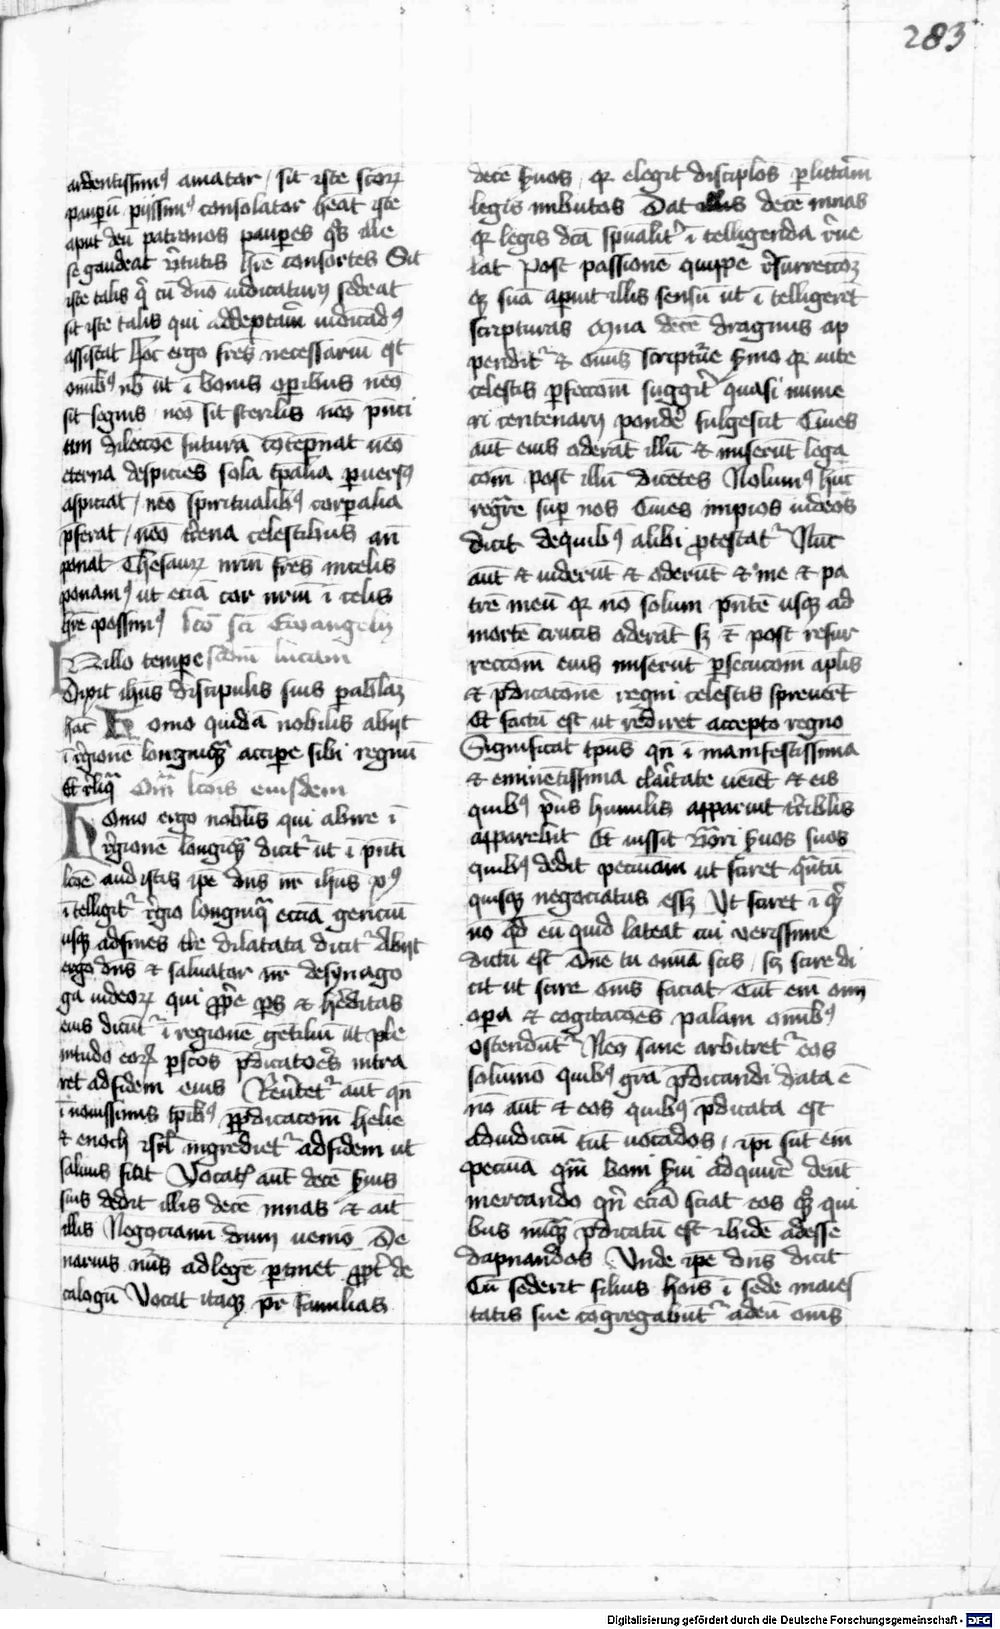 283
ardentissimꝰ amator / sit iste scōꝝ
paupū piissimꝰ consolator heat iste
aput deū patronos paupes qͦs ille
se gaudeat v̓tutis hr̄e consortes Sit
iste talis qͥ cū dno iudicaturꝰ sedeat
sit iste talis qui ad deptam iudicādꝰ
assistat Hoc ergo fres necessariū est
omībꝰ nb̄ ut ī bonis operibus nēo
sit segnis nēo sit sterilis nēo pn̄ti
um dilectōe futura cōtēpnat nēo
eterna despiciēs sola tp̄alia puersꝰ
aspiciat / nēo spiritualibꝰ corpalia
pferat / nēo t̓rena celestibus an
ponat Thesauꝝ nrm̄ fres in celis
ponamꝰ ut eciā cor nrm̄ ī celis
hr̄e possimꝰ lcō sc̄i Ewangelij
In illo tempe scdm lucam
Dixit ihūs discipulis suis pablaꝫ
hāc Homo quidā nobilis abijt
ī r̓gionē longinqͣ accipe sibi regnū
Et r̓liqͣ Om̄ lc̄ois eiusdem
Homo ergo nobilis qui abire ī
r̓gionē longīqͣ dicitᷣ ut ī pn̄ti
lc̄oe audistis ipe dn̄s nr̄ ihus xꝰ
ītelligitᷣ r̓gio longinqͣ ecc̄ia genciū
usqꝫ ad fines t̓re dilatata dicitᷣ Abijt
ergo dn̄s et saluator nr̄ de synago
ga iudeoꝝ qui ꝓpͥe pp̄s et h̓editas
eius dicūtᷣ ī regionē gētiliū ut ple
nitudo eoꝝ p scōs p̄dicatōes intra
ret ad fidem eius Reūtetᷣ aut qn̄
ī nouissimis tp̄ibꝰ p p̄dicacōm helie
et enoch isrl̄ ingredietᷣ ad fidem ut
saluus fiat Vocatis aut decē s̓uis
suis dedit illis decē mnas et ait
illis Negociamī dum uenio De
narius nūs ad legē ptinet ꝓpt̓ de
calogū Vocat itaqꝫ pr̄ familias
decē s̓uos qꝛ elegit discip̄los p litt̓am
legis imbutos Dat illis decē mnas
qꝛ legis dc̄a sp̄ualit̓ ī telligenda r̓ue
lat Post passionē quippe r̓surrectōꝫ
qꝫ suā apuit illis sensū ut ī telligerēt
scripturas Mna decē dragmis ap
penditᷣ et omīs scriptͥe s̓mo qꝛ uite
celestis pfectōm suggit̓ quasi nume
ri centenarij pond̓e fulgescit Ciues
aut eius oderāt illū et miserūt lega
cōm post illū dicētes Nolumꝰ hūc
regͣre sup nos Ciues impios iudeos
dicit de quibꝰ alibi ꝓtestatᷣ Nūc
aūt et uiderūt et oderūt et me et pa
trē meū qꝛ nō solum pn̄tē usqꝫ ad
mortē crucis oderāt sꝫ et post resur
rectōm eius miserūt psecucōm apl̄is
et p̄dicatōnē regni celestis spreuerūt
Et factū est ut rediret accepto regno
Significat tp̄us qn̄ ī manifestissima
et eminētissima claͥtate ueiet et eis
quibꝰ pͥus humilis apparuit t̓ribilis
apparebit Et iussit uocͣri s̓uos suos
quibꝰ dedit pecuniam ut sciret qͣntū
quisqꝫ negociatus essꝫ Vt sciret ī qͥt
no qͦd eū quid lateat cui verissime
dictū est Dn̄e tu omīa scis / sꝫ scire di
cit ut scire om̄s faciat Cūt em̄ om̄
opa et cogitacōes palam omībꝰ
ostendūtᷣ Neo sane arbitretᷣ eos
solum̄o quibꝰ grā p̄dicandi data ē
nō aūt et eos quibꝰ p̄dicata est
ad iudiciū tūt uocādos / ipi sūt em̄
pecunia qͣm boni s̓ui adquire debt
mercando qn̄ eciā sciat eos qͦqꝫ qui
bus nūqꝫ p̄dicatū est ibidē adesse
dapnandos Vnde ipe dn̄s dicit
Cū sederit filius hois ī sede maies
tatis sue cōgregabūtᷣ ad eū om̄s
Digitalisierung gefördert durch die Deutsche Forschungsgemeinschaft - DFG